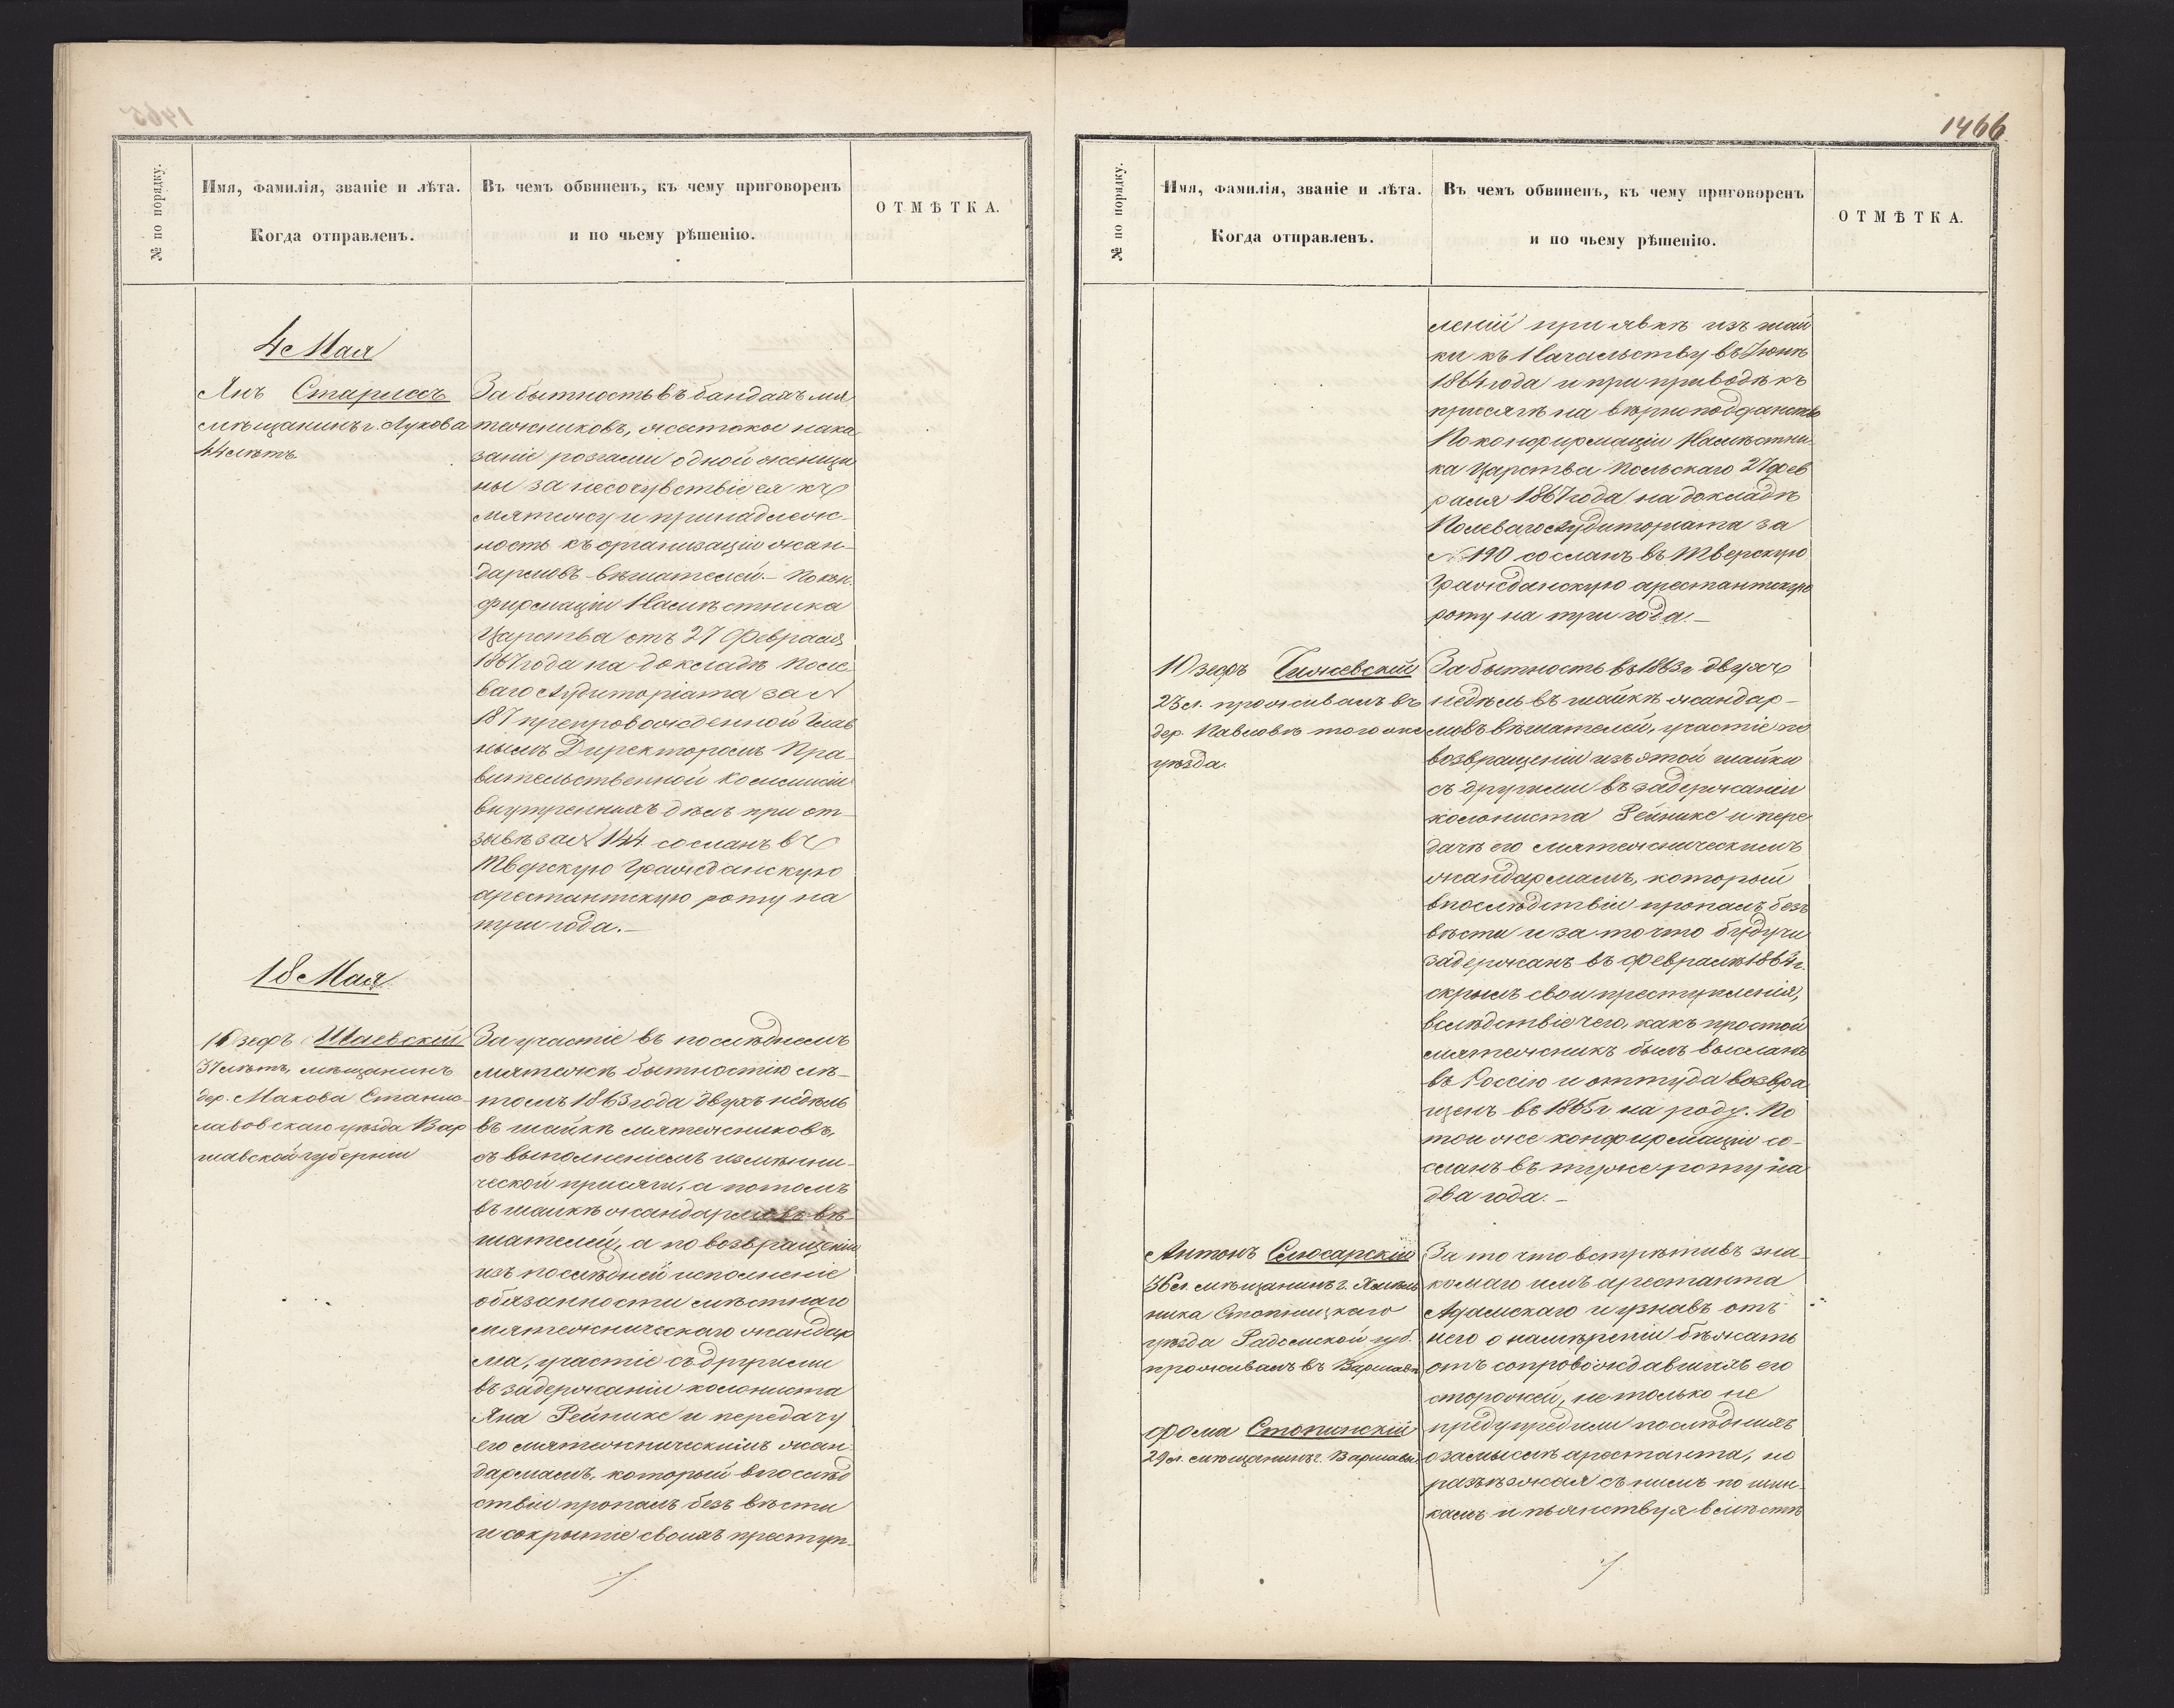 1466
№ по порядку.
Имя, Фамилія, званіе и лѣта.
Когда отправленъ.
Въ чемъ обвиненъ, къ чему приговоренъ
и по чьему рѣшенію.
ОТМѢТКА.
4 Мая
Янъ
мѣщанинъ г. Лукова
44 лѣтъ.
За бытность въ бандахъ мя
тежниковъ, жестокое нака
заніе розгами одной женщи
ны за несочувствіе ея къ
мятежу и принадлеж-
ность къ организаціи жан-
дармовъ-вѣшателей. – По кон
фирмаціи Намѣстника
Царства отъ 27 Февраля
1867 года на докладѣ Поле
ваго Аудиторіата за №
187 препровожденной Глав
нымъ Директоромъ Пра-
вительственной Коммисіи
внутреннихъ дѣлъ при от-
зывѣ за № 144 сосланъ въ
Тверскую Гражданскую
арестантскую роту на
три года. –
18 Мая
Іозефъ Шаевскій
37 лѣтъ, мѣщанинъ
дер. Макова Станис-
лавовскаго уѣзда Вар
шавской губерніи
За участіе въ послѣднемъ
мятежѣ бытностію лѣ-
томъ 1863 года двухъ недѣль
въ шайкѣ мятежниковъ,
съ выполненіемъ измѣнни-
ческой присяги, а потомъ
въ шайкѣ жандармовъ вѣ-
шателей, а по возвращеніи
изъ послѣдней исполненіе
обязанности мѣстнаго
мятежническаго жандар
ма, участіе съ другими
въ задержаніи колониста
Яна Рейнике и передачу
его мятежническимъ жан-
дармамъ, который впослѣд
ствіи пропалъ безъ вѣсти
и сокрытіе своихъ преступ-
№ по порядку.
Имя, Фамилія, званіе и лѣта.
Когда отправленъ.
Въ чемъ обвиненъ, къ чему приговоренъ
и по чьему рѣшенію.
ОТМѢТКА.
леній при явкѣ изъ шай
ки къ Начальству въ Іюнѣ
1864 года и при приводѣ къ
присягѣ на вѣрноподданство
По конфирмаціи Намѣстни-
ка Царства Польскаго 27 фев
раля 1867 года на докладѣ
Полеваго Аудиторіата за
№ 190 сосланъ въ Тверскую
Гражданскую арестантскую
роту на три года. –
Іозефъ Чижевскій
23 л. проживалъ въ
дер. Павловѣ того же
уѣзда.
За бытность въ 1863 г двухъ
недѣль въ шайкѣ жандар-
мовъ вѣшателей, участіе по
возвращеніи изъ этой шайки
съ другими въ задержаніи
колониста Рейнике и пере
дачѣ его мятежническимъ
жандармамъ, который
впослѣдствіи пропалъ безъ
вѣсти и за то что будучи
задержанъ въ Февралѣ 1864 г.
скрылъ свои преступленія,
вслѣдствіе чего, какъ простой
мятежникъ былъ высланъ
въ Россію и оттуда возвра
щенъ въ 1865 г на роду. По
той же конфирмаціи со-
сланъ въ туже роту на
два года. –
Антонъ Слюсарскій
36 л. мѣщанинъ г.
ника Стопницкаго
уѣзда Радомской губ.
проживалъ въ Варшавѣ
Фома Стопинскій
29 л. мѣщанинъ г. Варшавы
За то что встрѣтивъ зна-
комаго имъ арестанта
Адамскаго и узнавъ отъ
него о намѣреніи бѣжать
отъ сопровождавшихъ его
сторожей, не только не
предупредили послѣднихъ
о замыслѣ арестанта, но
разъѣзжая съ нимъ по шин-
камъ и пьянствуя вмѣстѣ